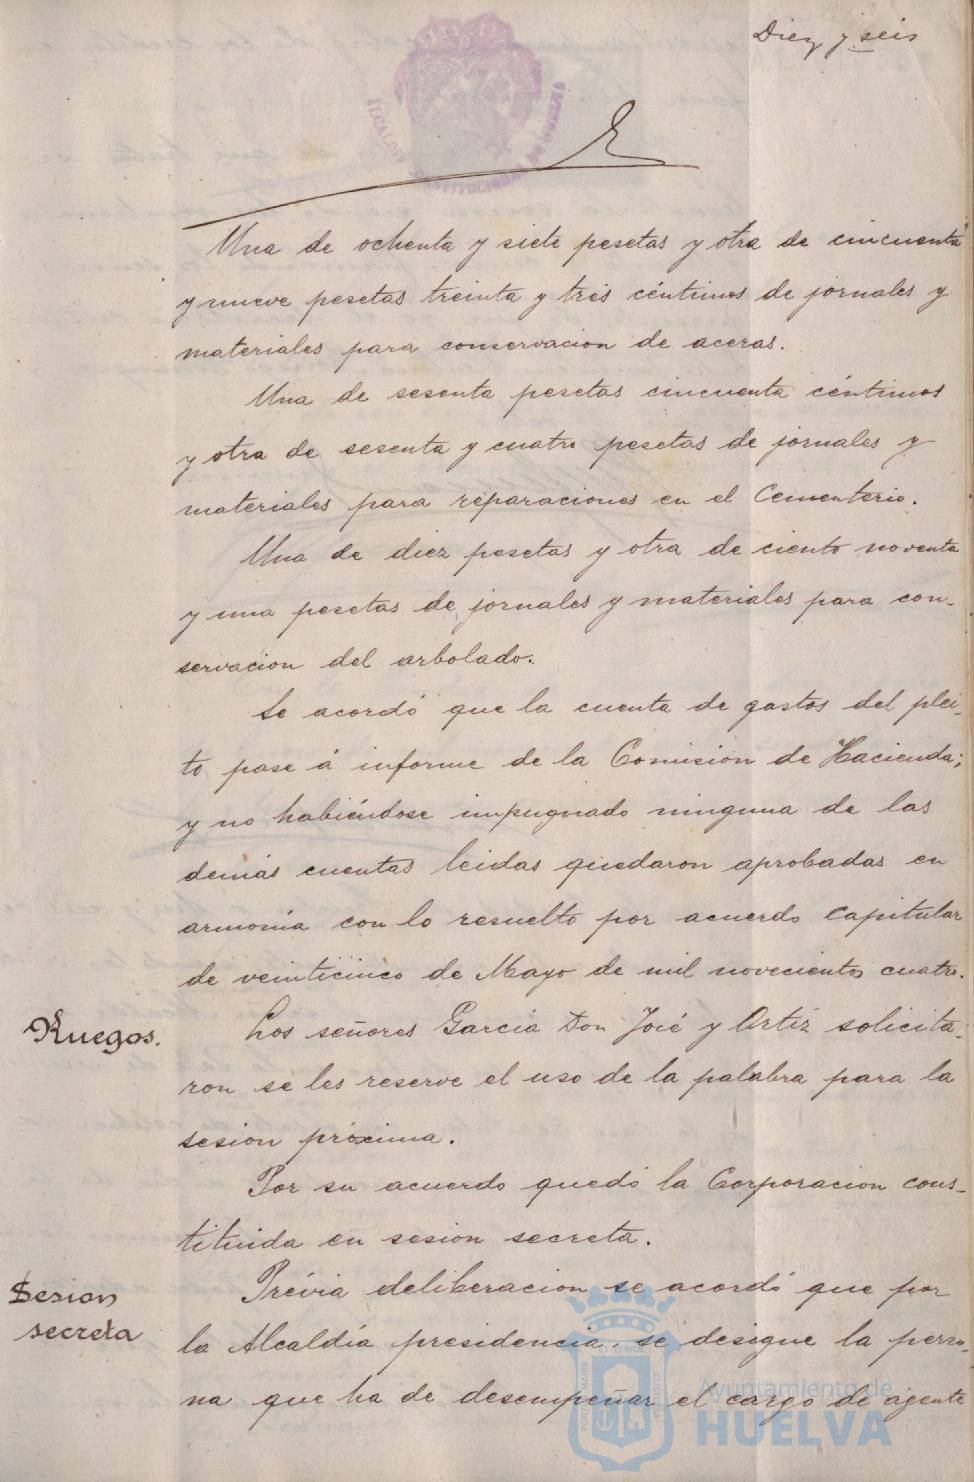 Diez y seis
Una de ochenta y siete pesetas y otra de cincuenta
y nueve pesetas treinta y tres céntimos de jornales y
materiales para conservacion de aceras.
Una de sesenta pesetas cincuenta céntimos
y otra de sesenta y cuatro pesetas de jornales y
materiales para reparaciones en el Cementerio.
Una de diez pesetas y otra de ciento noventa
y una pesetas de jornales y materiales para con-
servacion del arbolado.
Se acordó que la cuenta de gastos del plei-
to pase á informe de la Comision de Hacienda;
y no habiéndose impugnado ninguna de las
demás cuentas leidas quedaron aprobadas en
armonía con lo resuelto por acuerdo capitular
de veinticinco de Mayo de mil novecientos cuatro.
Ruegos.
Los señores García Don José y Ortiz solicita-
ron se les reserve el uso de la palabra para la
sesion próxima.
Por su acuerdo quedó la Corporacion cons-
tituida en sesion secreta.
Sesion
secreta
Prévia deliberacion se acordó que por
la Alcaldía presidencia, se designe la perso-
na que ha de desempeñar el cargo de agente
Ayuntamiento de
HUELVA